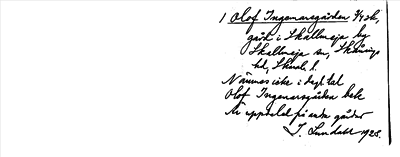 1 Olof Ingemarsgården 3/4 sk,
gård i Skallmeja by
Skallmeja sn, Skånings
hd, Skarab. l.
Nämnes icke i dagl. tal
Olof Ingemarsgården helt
är uppdelad på andra gårdar
J. Lundahl 1925.